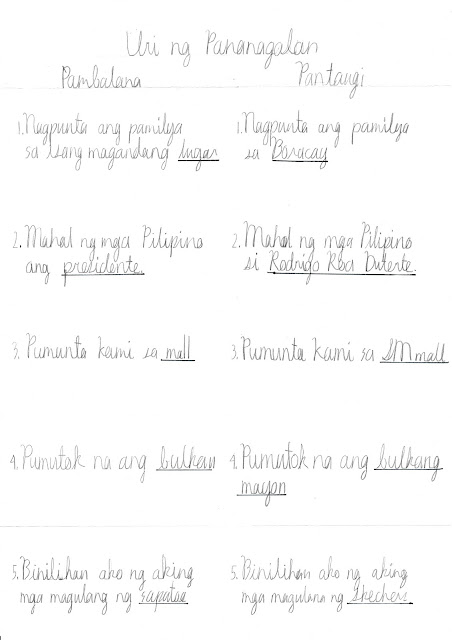 Uri ng Pananagalan
Pambalana
Pantangi
1. Nagpunta ang pamilya
sa isang magandang lugar
2. Mahal ng mga Pilipino
ang presidente.
3. Pumunta kami sa mall
4. Pumutok na ang bulkan
5. Binilihan ako ng aking
mga magulang ng sapatos
1. Nagpunta ang pamilya
sa Boracay
2. Mahal ng mga Pilipino
si Rodrigo Roa Duterte.
3. Pumunta kami sa SM mall
4. Pumutok na ang bulkang
mayon
5. Binilihan ako ng aking
mga magulang ng Skechers.